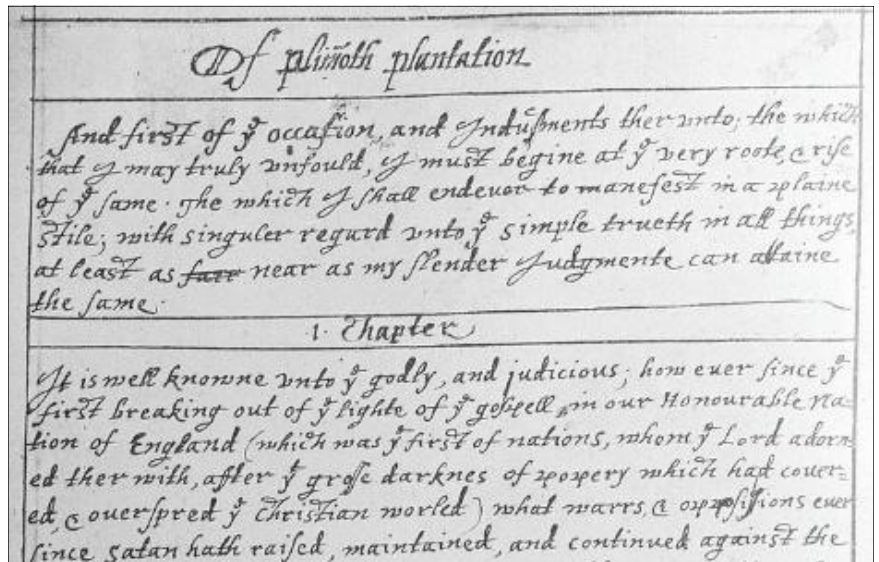 Of plim̃oth plantation
And first of yᵉ occasion, and Indusments ther vnto; the which
that I may truly vnfould, I must begine at yᵉ very roote, & rise
of yᵉ same. The which I shall endevor to manefest in a plaine
stile; with singuler regard vnto yᵉ simple trueth in all things,
at least as farr near as my slender Judgmente can attaine
the same.
1. Chapter
It is well knowne vnto yᵉ godly, and judicious; how euer since yᵉ
first breaking out of yᵉ lighte of yᵉ gospell, in our Honourable na=
tion of England (which was yᵉ first of nations, whom yᵉ Lord adorn=
ed ther with, after yᵉ grose darknes of popery which had couer=
ed, & ouerspred yᵉ christian worled) what warrs, & oppossitions euer
since Satan hath raised, maintained, and continued against the